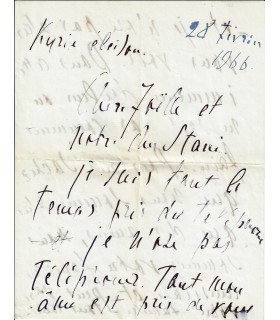 28 février
1966
Kyrie éleison.
Chère Joëlle et
notre cher Stani
je suis tout le
temps près du téléphone
et je n'ose pas
Téléphoner. Tout mon
âme est près de vous